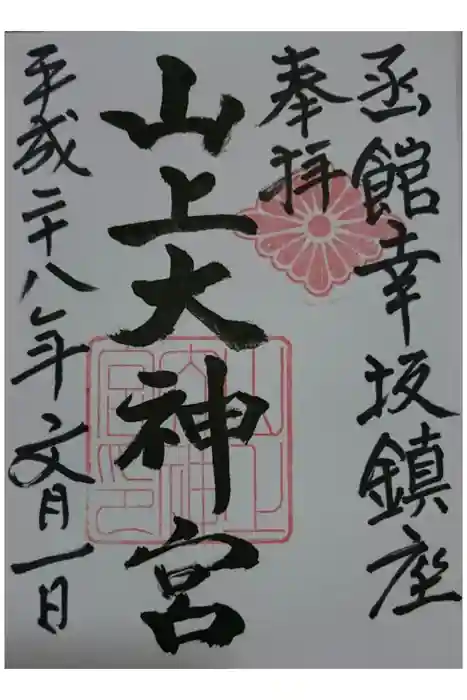 函館幸坂鎮座
奉拝
山上大神宮
平成二十八年文月一日